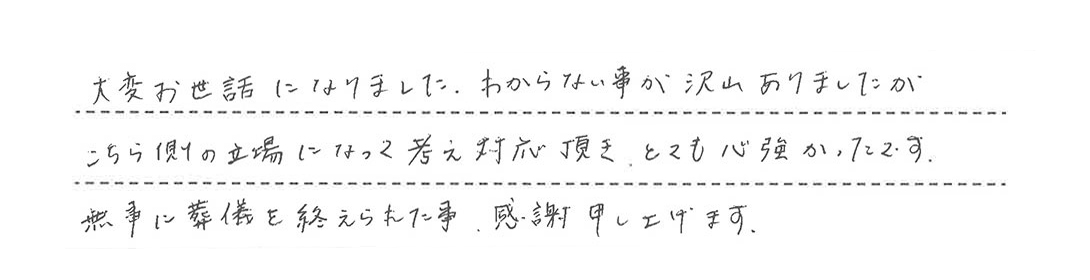 大変お世話になりました。わからない事が沢山ありましたが
こちら側の立場になって考え対応頂き、とても心強かったです。
無事に葬儀を終えられた事、感謝申し上げます。